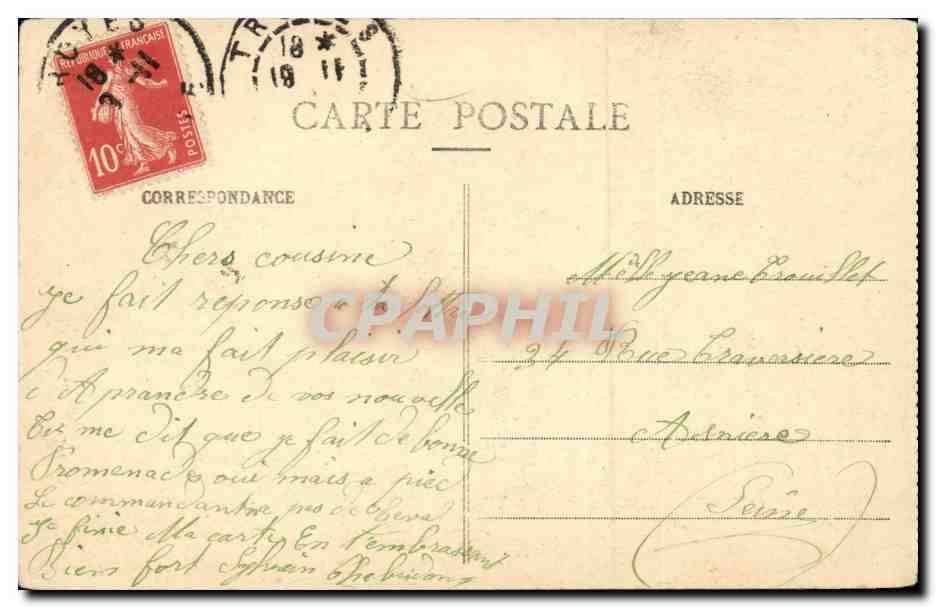 TROYES
18 *
9 -11
REPUBLIQUE FRANÇAISE
10c
POSTES
18 *
19 11
CARTE POSTALE
CORRESPONDANCE
ADRESSE
Chers cousine
je fait réponse a ta lettre
qui ma fait plaisir
d'Aprandre de vos nouvelle
Tu me dit que je fait de bonne
Promenade oui mais a pied
Le commandant na pas de cheval
Je finie Ma carte En t'embrassant
Bien fort Sylvain
Melle jeane Trouillet
34 Rue Traversiere
Asniere
(Seine)
CPAPHIL